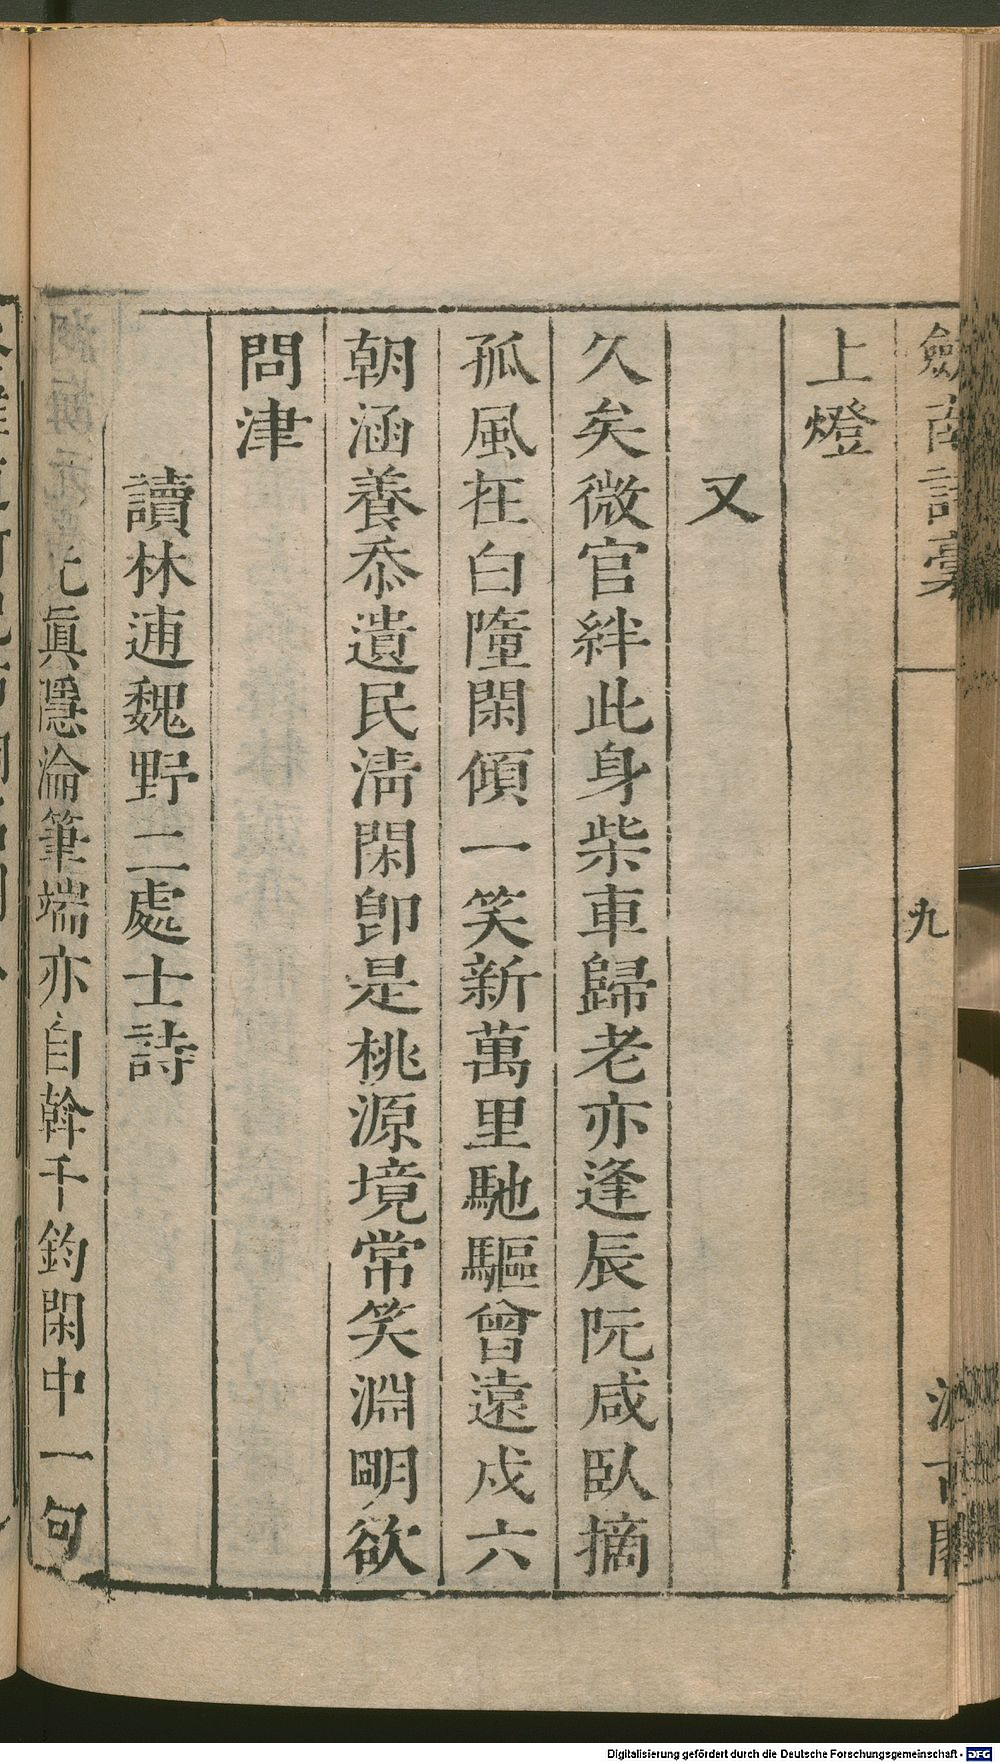 劔南詩稾
九
上燈
又
久矣微官絆此身柴車歸老亦逢辰阮咸臥摘
孤風在白墮閑傾一笑新萬里馳驅曾遠戍六
朝涵養忝遺民淸閑卽是桃源境常笑淵明欲
問津
讀林逋魏野二處士詩
眞隱淪筆端亦自斡千鈞閑中一句
Digitalisierung gefördert durch die Deutsche Forschungsgemeinschaft - DFG